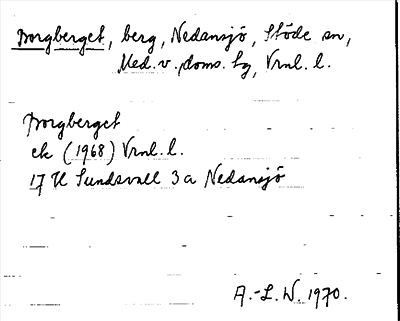 Borgberget, berg, Nedansjö, Stöde sn,
Med. v. doms. tg, Vrnl. l.
Borgberget
ek (1968) Vrnl. l.
17 H Sundsvall 3 a Nedansjö
A.-L. W. 1970.